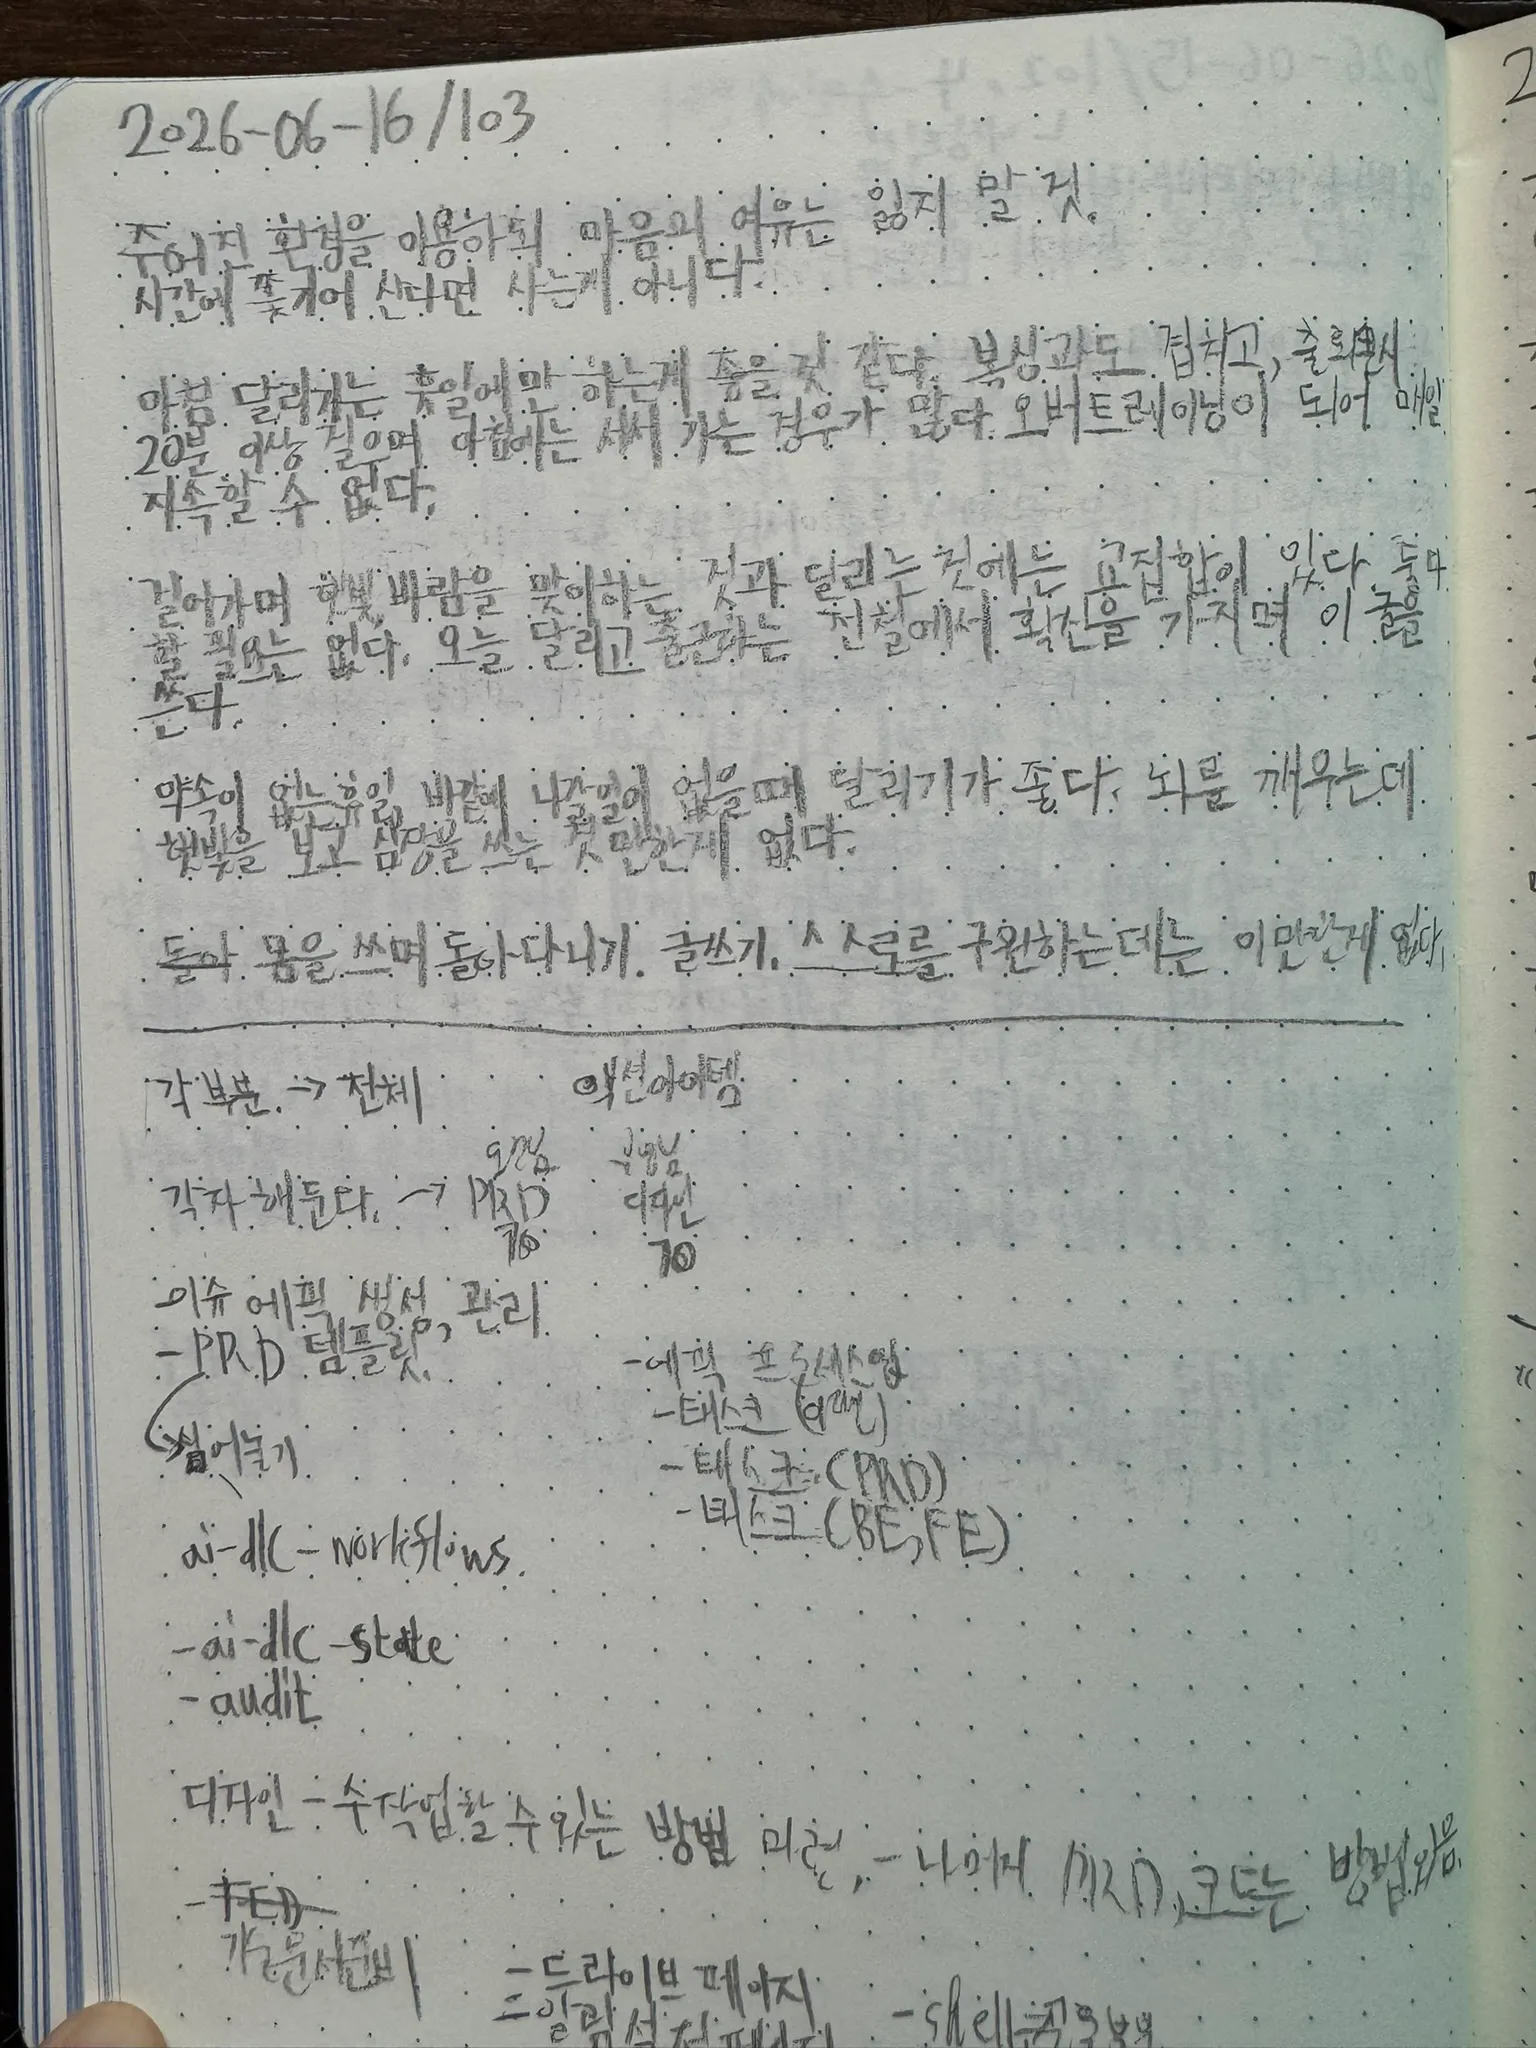 2026-06-16/103
주어진 환경을 이용하되 마음의 여유는 잃지 말 것.
시간에 쫓기어 산다면 사는게 아니다.
아침 달리기는 휴일에만 하는게 좋을 것 같다. 복싱과도 겹치고, 출퇴근시
20분 이상 걸으며 아침에는 서서 가는 경우가 많다. 오버트레이닝이 되어 매일
지속할 수 없다.
걸어가며 햇빛, 바람을 맞이하는 것과 달리는 것에는 교집합이 있다 둘다
할 필요는 없다. 오늘 달리고 출근하는 전철에서 확신을 가지며 이 글을
쓴다.
약속이 없는 휴일, 바깥에 나갈일이 없을때 달리기가 좋다. 뇌를 깨우는데
햇빛을 보고 심장을 쓰는 것 만한게 없다.
돌아 몸을 쓰며 돌아다니기. 글쓰기. 스스로를 구원하는데는 이만한게 없다.
각 부분. → 전체 액션아이템
각자 해둔다. → PRD 디자인
70 70
이슈 에픽 생성, 관리
- PRD 템플릿.
- 에픽 프로세스업
- 태스크
썰어놓기
- 태스크 (PRD)
- 태스크 (BE, FE)
ai-dlc-workflows.
- ai-dlc-state
- audit
디자인 - 수작업할 수 있는 방법 마련, - 나머지 코드는 방법있음.
- 드라이브 페이지
- 알림 설정 페이지
- shell